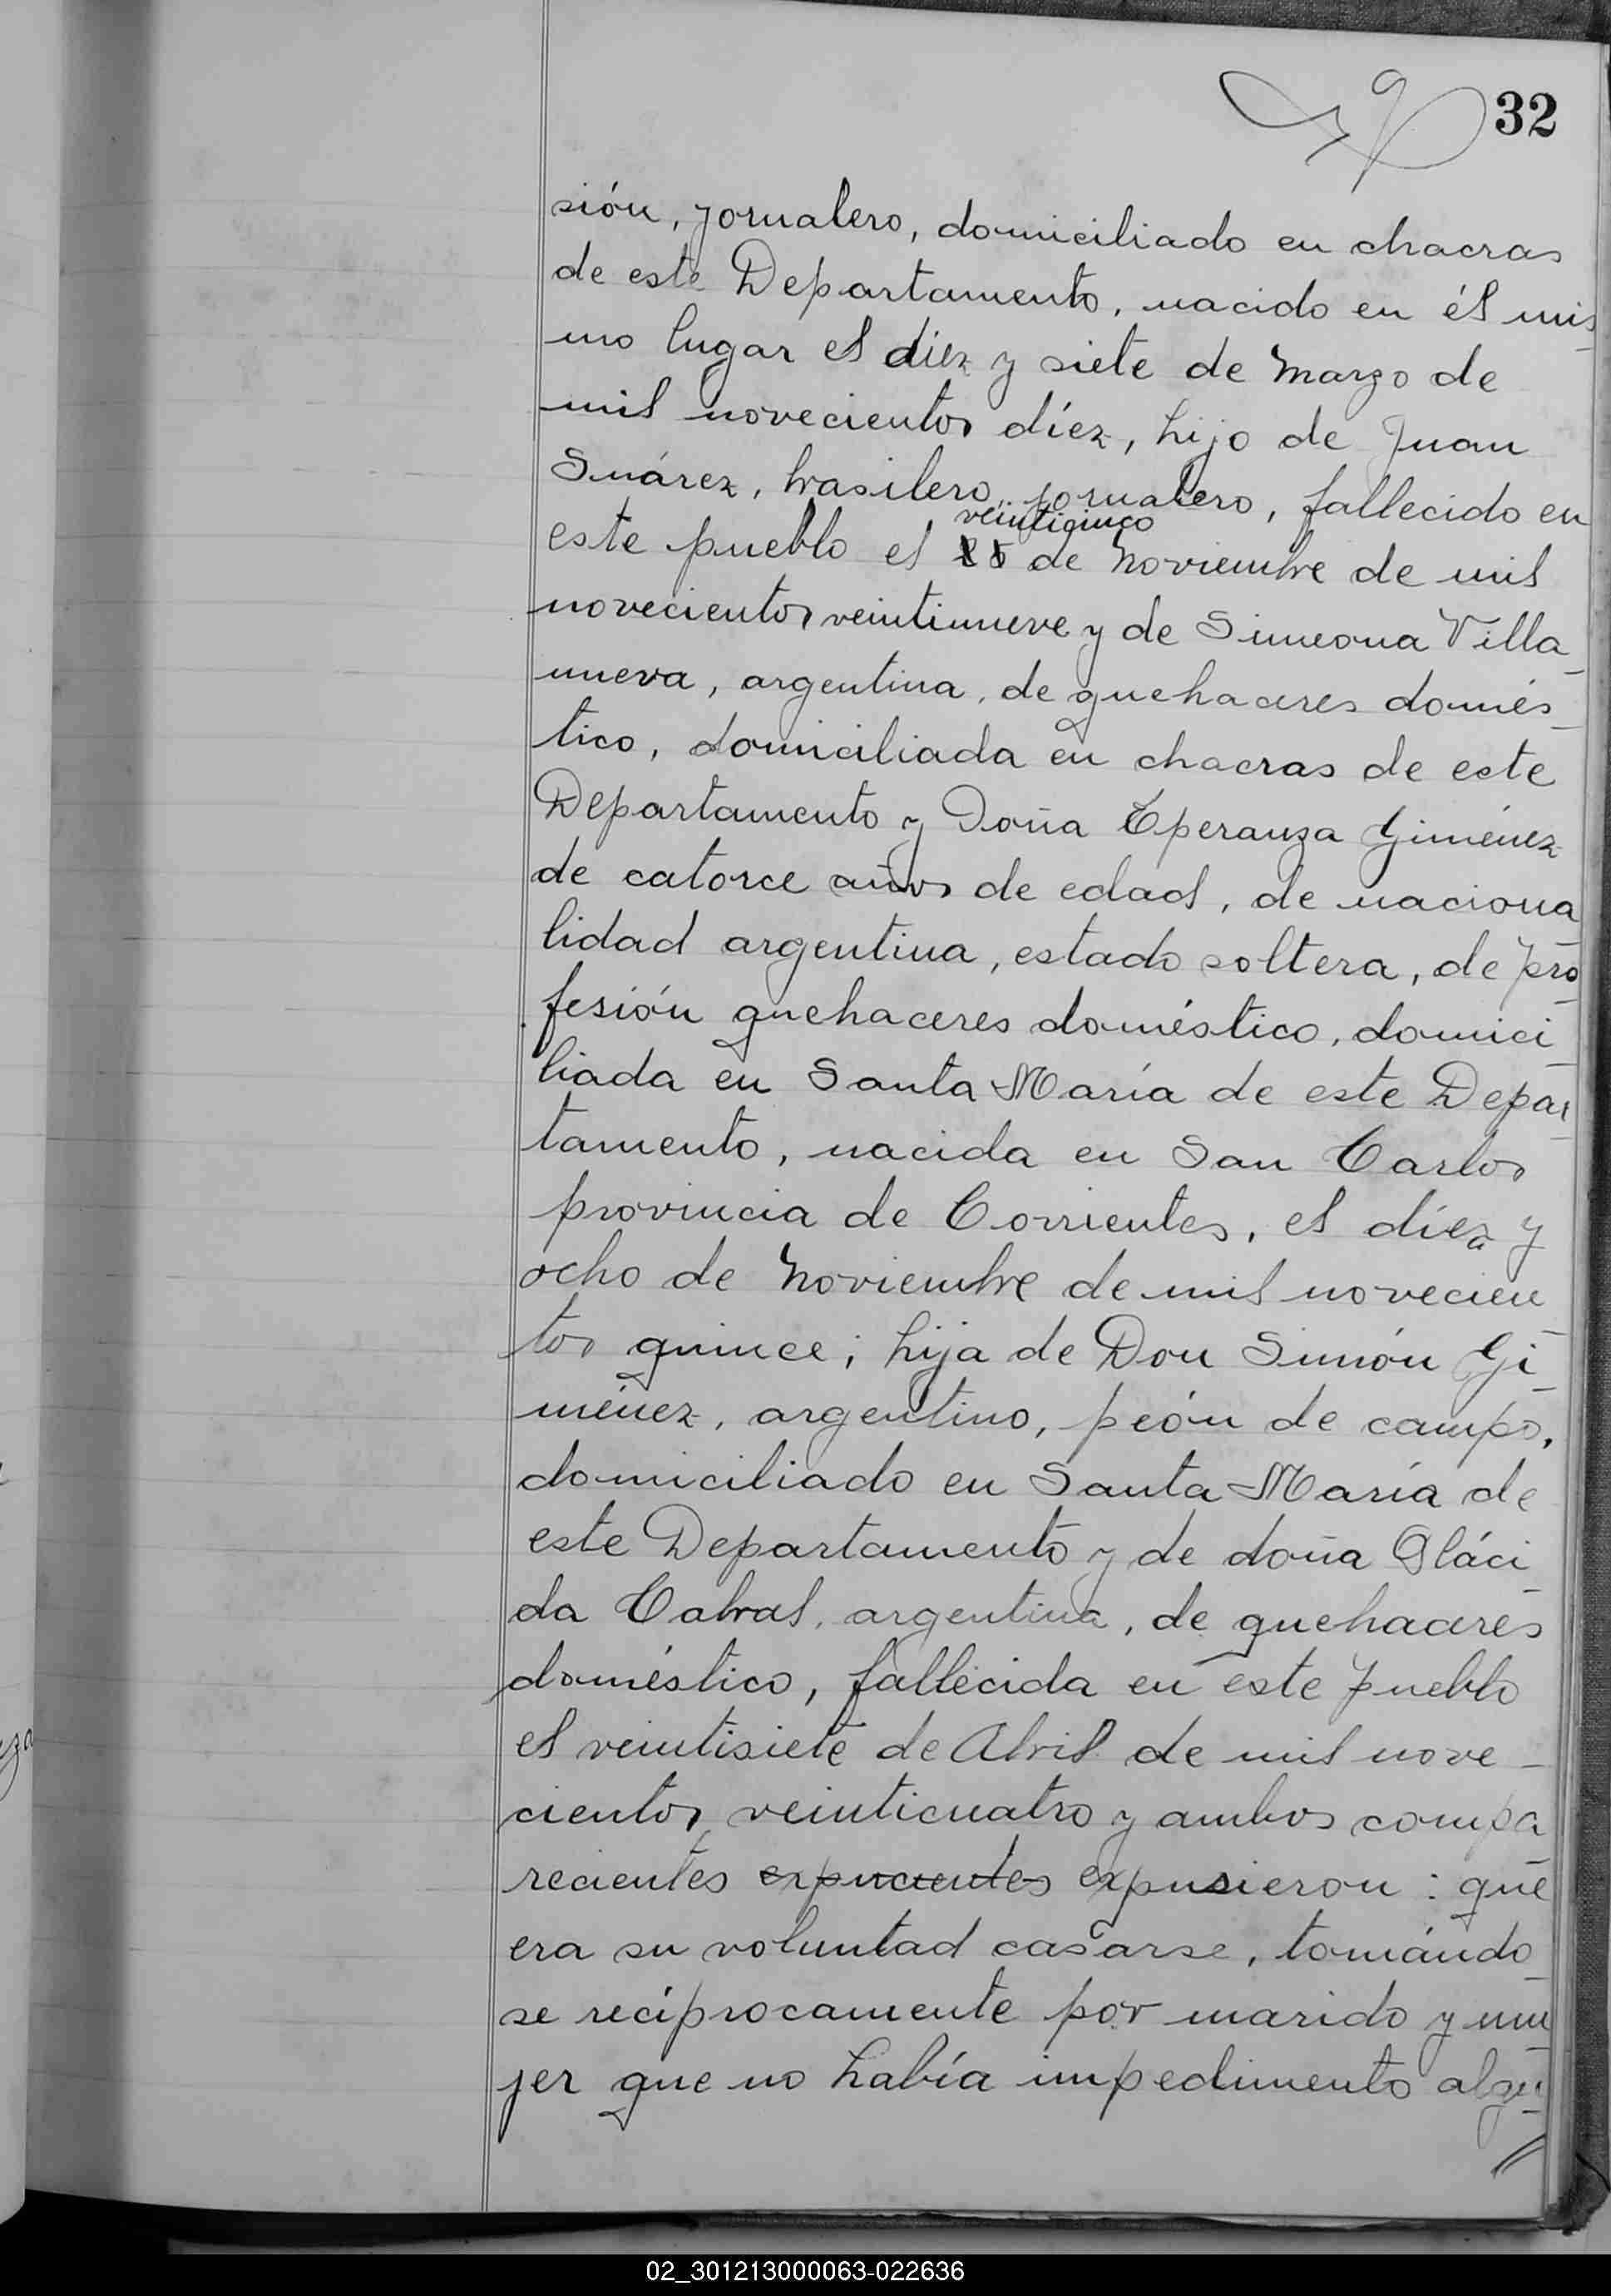 32
sión, jornalero, domiciliado en chacras
de este Departamento, nacido en él mis
mo lugar el diez y siete de Marzo de
mil novecientos diéz, hijo de Juan
Suárez, brasilero, jornalero, fallecido en
veinticinco
este pueblo el 25 de Noviembre de mil
novecientos veintinueve y de Simeona Villa
nueva, argentina, de quehaceres domés
tico, domiciliada en chacras de este
Departamento y Doña Eperanza Giménez
de catorce años de edad, de naciona
lidad argentina, estado soltera, de pro
fesión quehaceres doméstico, domici
liada en Santa María de este Depar
tamento, nacida en San Carlos
provincia de Corrientes, el diez y
ocho de Noviembre de mil novecien
tos quince; hija de Don Simón Gi
ménez, argentino, peón de campo,
domiciliado en Santa María de
este Departamento y de doña Pláci
da Cabral, argentina, de quehaceres
doméstico, fallecida en este pueblo
el veintisiete de Abril de mil nove
cientos veinticuatro y ambos compa
recientes expusieron: que
era su voluntad casarse, tomándo
se recíprocamente por marido y mu
jer que no había impedimento algu
02_301213000063-022636